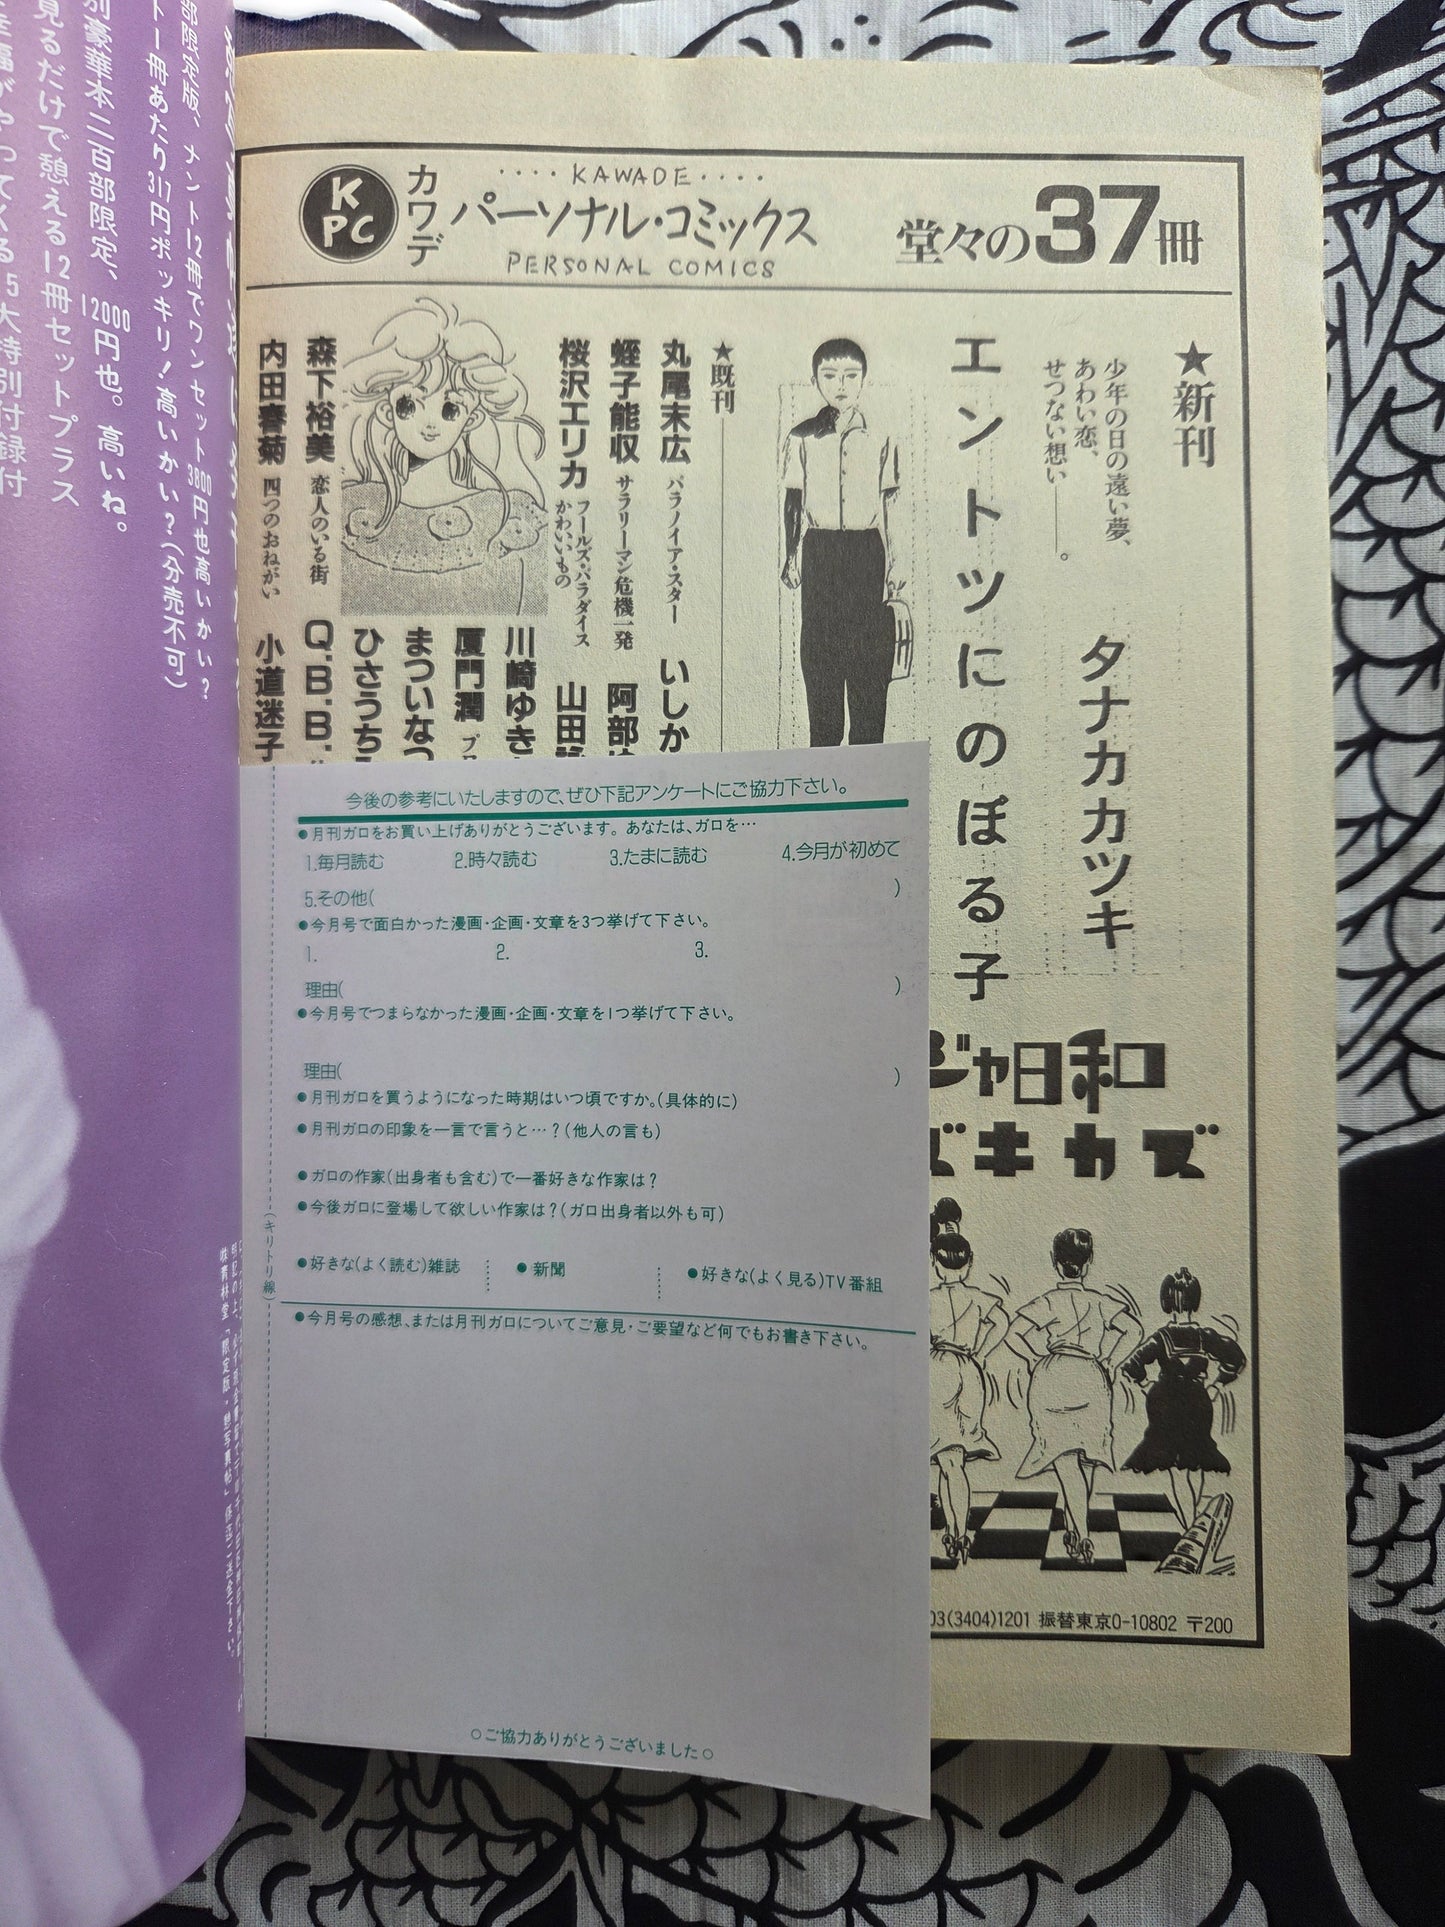 KPC
カワデ
····KAWADE····
パーソナル・コミックス
PERSONAL COMICS
堂々の37冊
★新刊
少年の日の遠い夢、
あわい恋、
せつない想い――。
タナカカツキ
エントツにのぼる子
ジャ日和
ズキカズ
★既刊
丸尾末広 パラノイア・スター
いしか
蛭子能収 サラリーマン危機一発
阿部
桜沢エリカ フールズ・パラダイス
かわいいもの
山田
川崎ゆき
厦門潤
まついなつ
ひさうち
森下裕美 恋人のいる街
Q.B.B.
内田春菊 四つのおねがい
小道迷子
03(3404)1201 振替東京0-10802 〒200
今後の参考にいたしますので、ぜひ下記アンケートにご協力下さい。
●月刊ガロをお買い上げありがとうございます。あなたは、ガロを…
1.毎月読む 2.時々読む 3.たまに読む 4.今月が初めて
5.その他( )
●今月号で面白かった漫画・企画・文章を3つ挙げて下さい。
1. 2. 3.
理由( )
●今月号でつまらなかった漫画・企画・文章を1つ挙げて下さい。
理由( )
●月刊ガロを買うようになった時期はいつ頃ですか。(具体的に)
●月刊ガロの印象を一言で言うと…?(他人の言も)
●ガロの作家(出身者も含む)で一番好きな作家は?
●今後ガロに登場して欲しい作家は?(ガロ出身者以外も可)
●好きな(よく読む)雑誌 ●新聞 ●好きな(よく見る)TV番組
●今月号の感想、または月刊ガロについてご意見・ご要望など何でもお書き下さい。
○ご協力ありがとうございました○
(キリトリ線)
部限定版、ナント12冊でワンセット3800円也高いかい?
ト一冊あたり317円ポッキリ!高いかい?(分売不可)
別豪華本二百部限定、12000円也。高いね。
見るだけで憩える12冊セットプラス
がやってくる5大特別付録付
㈱青林堂「限定版・